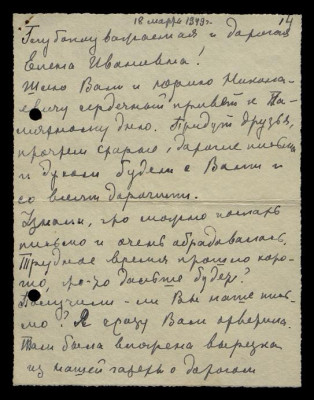 18 марта 1943 г.
14
Глубокоуважаемая и дорогая
Елена Ивановна!
Шлю Вам и Юрию Никола-
евичу сердечный привет к Па-
мятному дню. Придут друзья,
прочтем старые, дорогие письма
и духом будем с Вами и
со всеми дорогими.
Узнали, что можно послать
письмо и очень обрадовалась.
Трудное время прошло хоро-
шо, что-то дальше будет?
Получили-ли Вы наше пись-
мо? Я сразу Вам ответила.
Там была вложена вырезка
из нашей газеты о дорогом